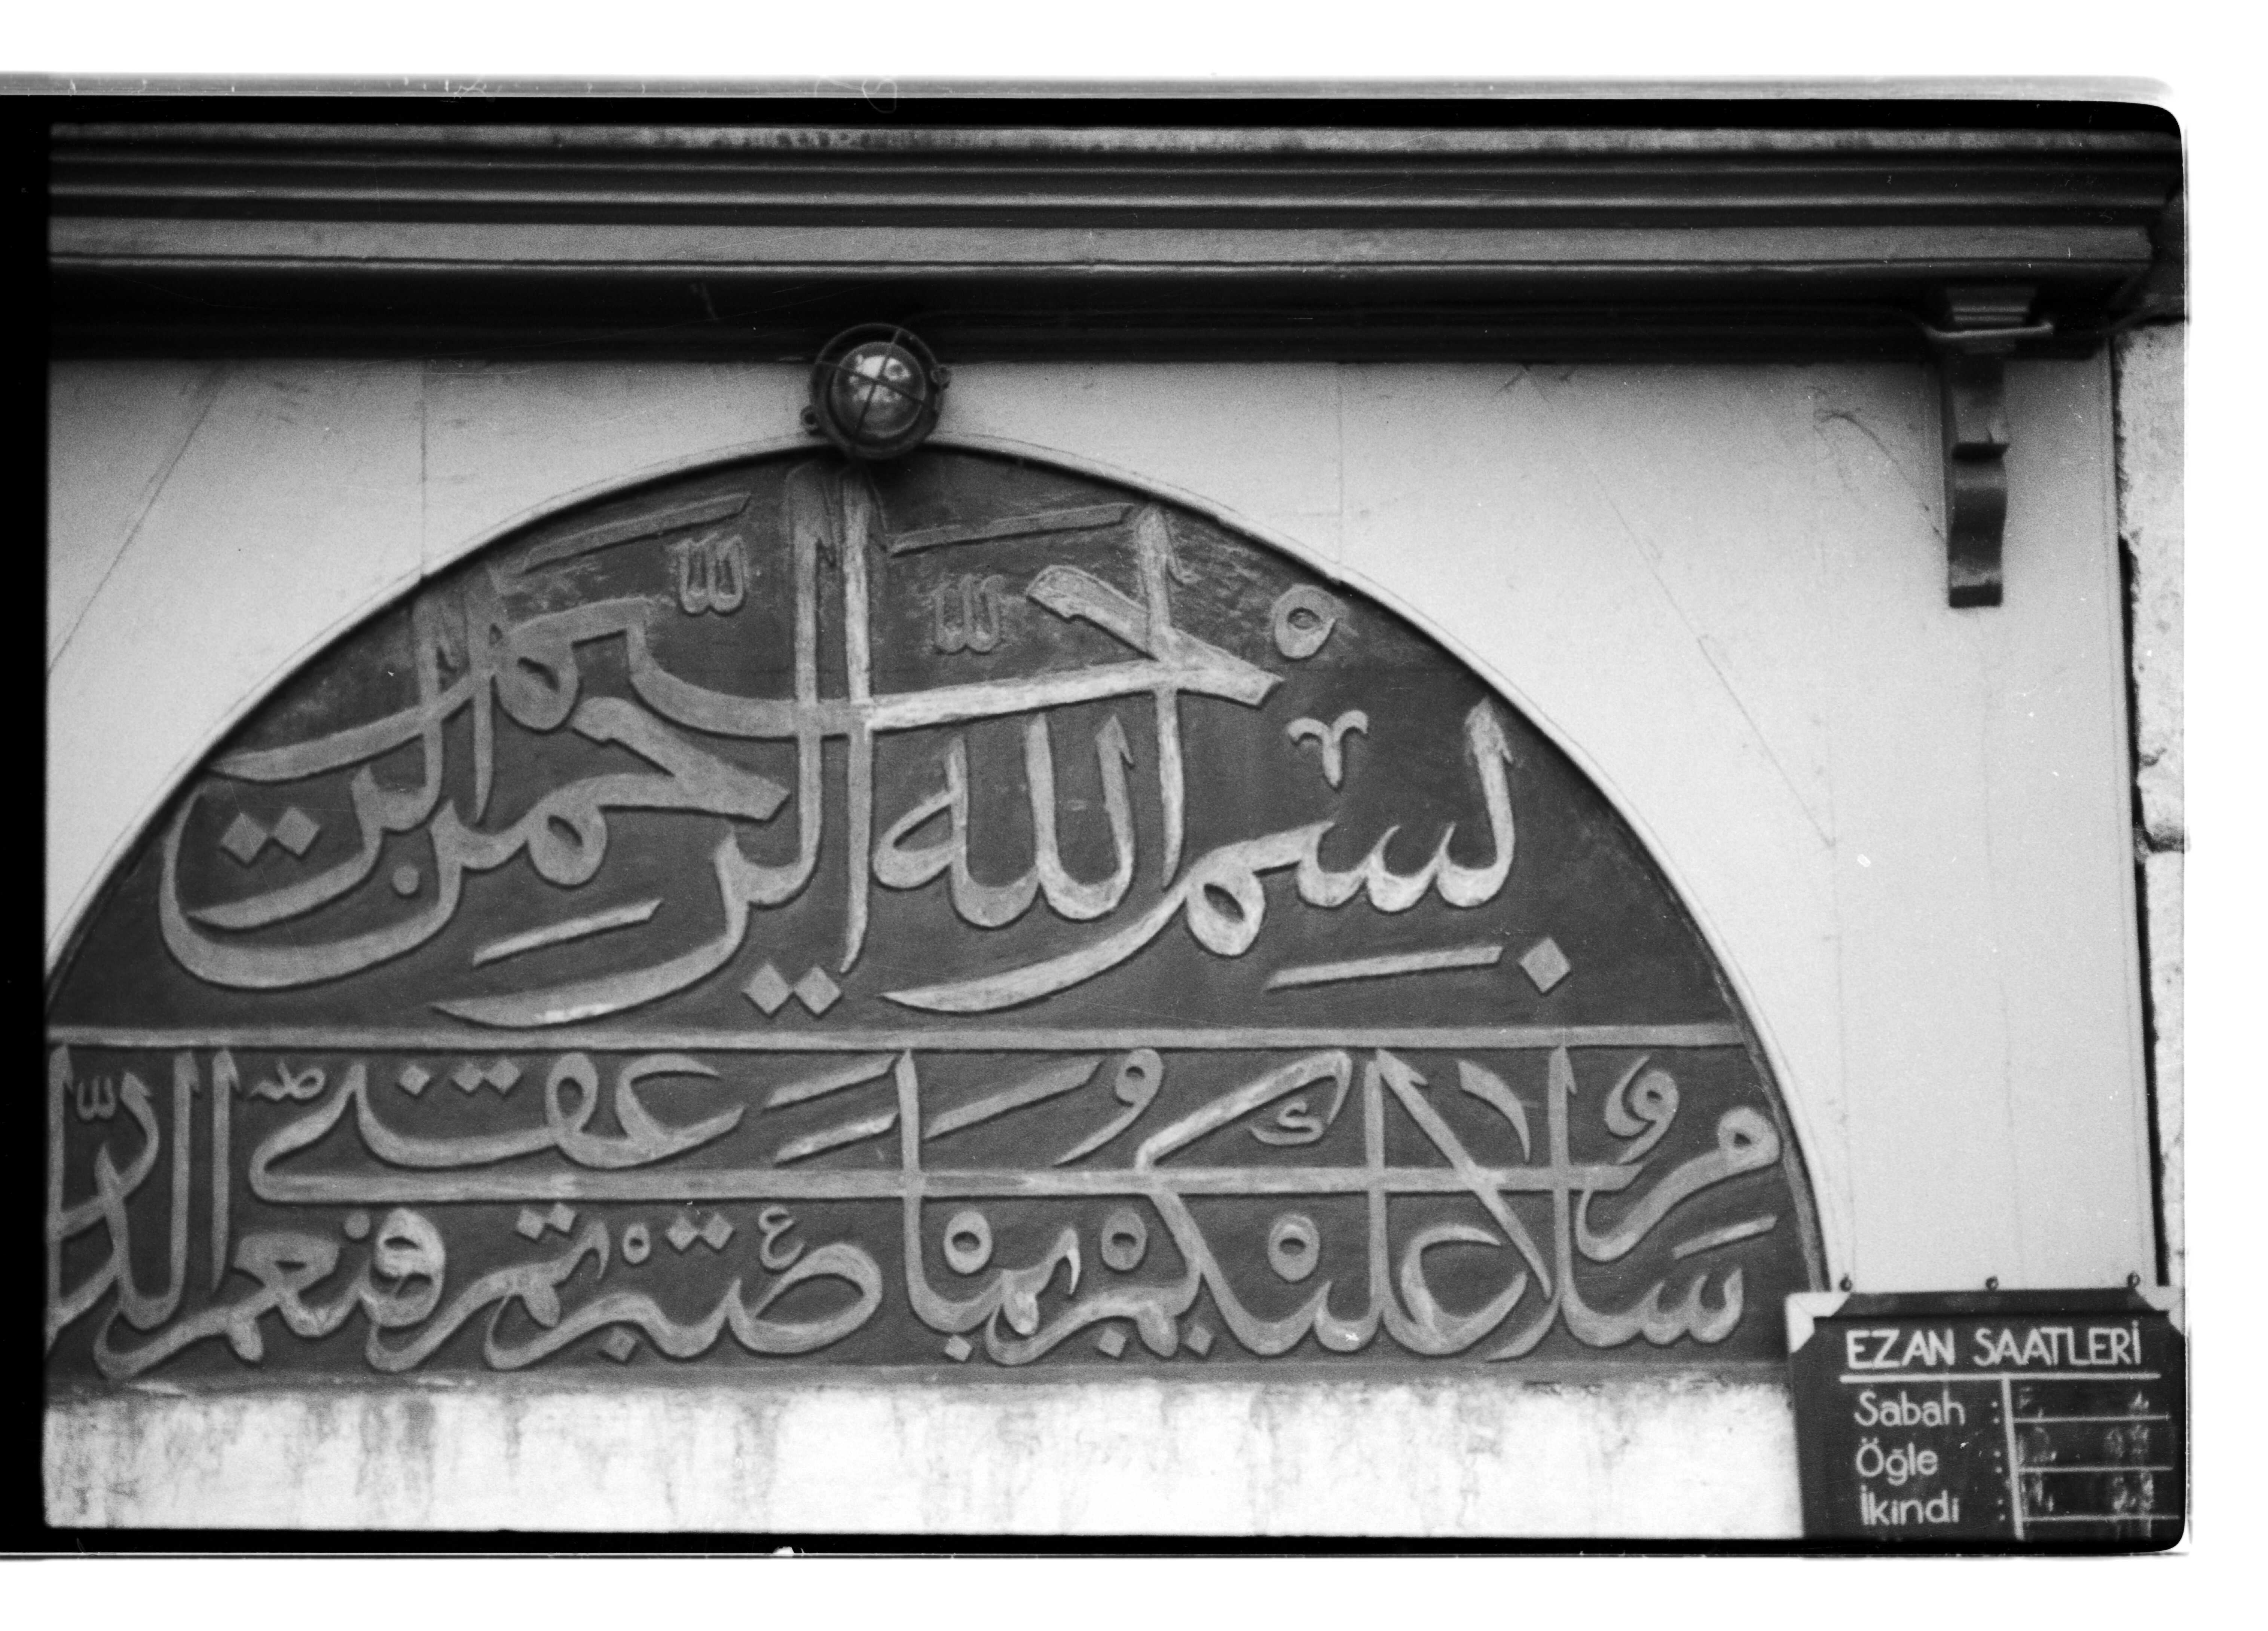 بسم الله الرحمن الرحيم
سلام عليكم بما صبرتم فنعم عقبى الدار
EZAN SAATLERİ
Sabah :
Öğle :
İkindi :